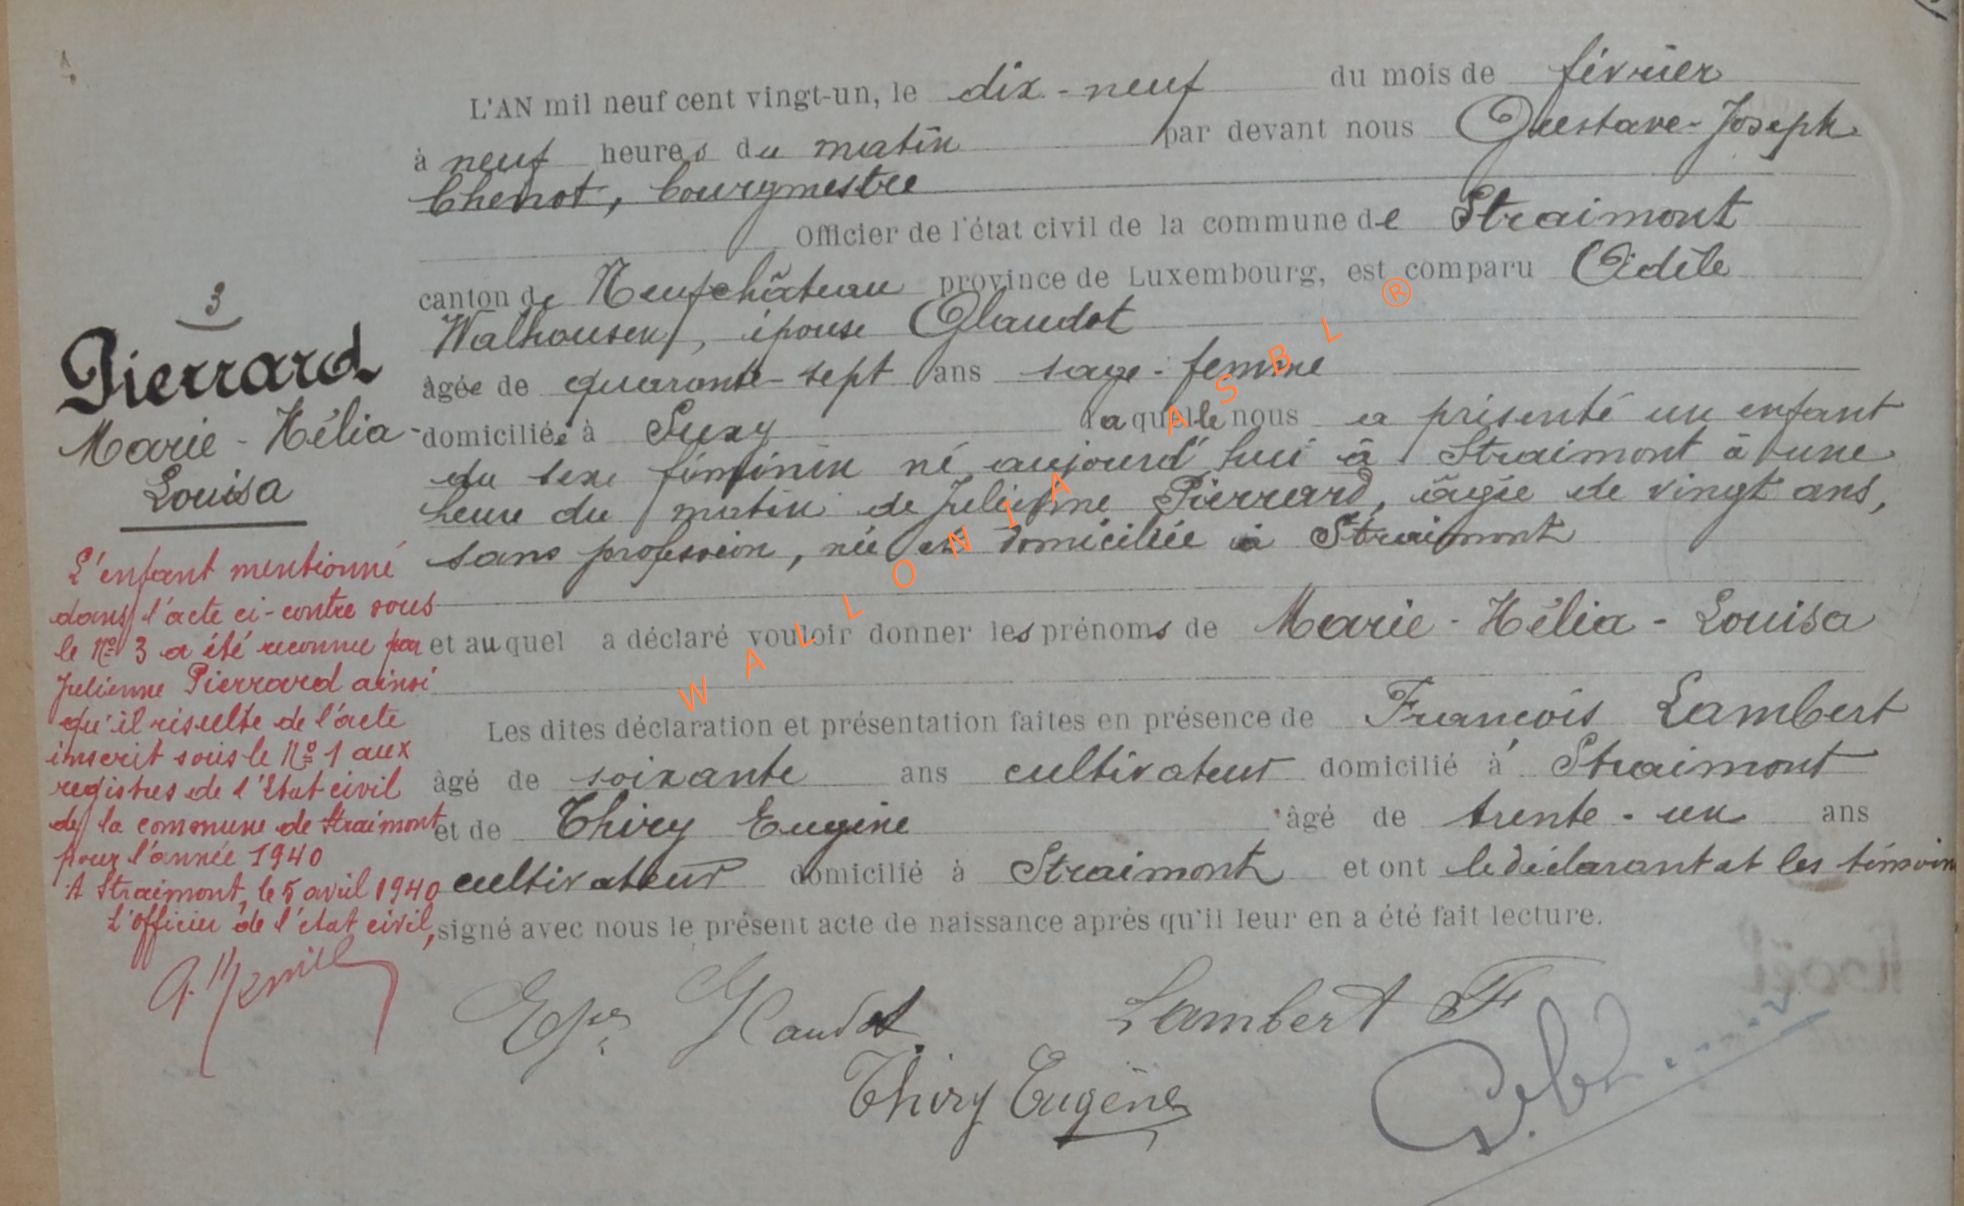 L'AN mil neuf cent vingt-un, le dix-neuf du mois de février
à neuf heures du matin par devant nous Gustave-Joseph
Chenot, bourgmestre
Officier de l'état civil de la commune de Straimont
canton de Neufchâteau province de Luxembourg, est comparu Adèle
Walhousen, épouse Glaudot
âgée de quarante-sept ans sage-femme
domiciliée à Suxy laquelle nous a présenté un enfant
du sexe féminin né aujourd'hui à Straimont à une
heure du matin de Julienne Pierrard, âgée de vingt ans,
sans profession, née et domiciliée à Straimont
et auquel a déclaré vouloir donner les prénoms de Marie-Hélia-Louisa
Les dites déclaration et présentation faites en présence de François Lambert
âgé de soixante ans cultivateur domicilié à Straimont
et de Thiry Eugène âgé de trente-un ans
cultivateur domicilié à Straimont et ont le déclarant et les témoin
signé avec nous le présent acte de naissance après qu'il leur en a été fait lecture.
3
Pierrard
Marie-Hélia-
Louisa
L'enfant mentionné
dans l'acte ci-contre sous
le Nº 3 a été reconnu par
Julienne Pierrard ainsi
qu'il résulte de l'acte
inscrit sous le Nº 1 aux
registres de l'Etat civil
de la commune de Straimont
pour l'année 1940
A Straimont, le 5 avril 1940
L'officier de l'état civil,
Glaudot
Lambert F
Thiry Eugène
WALLONIA ASBL ®